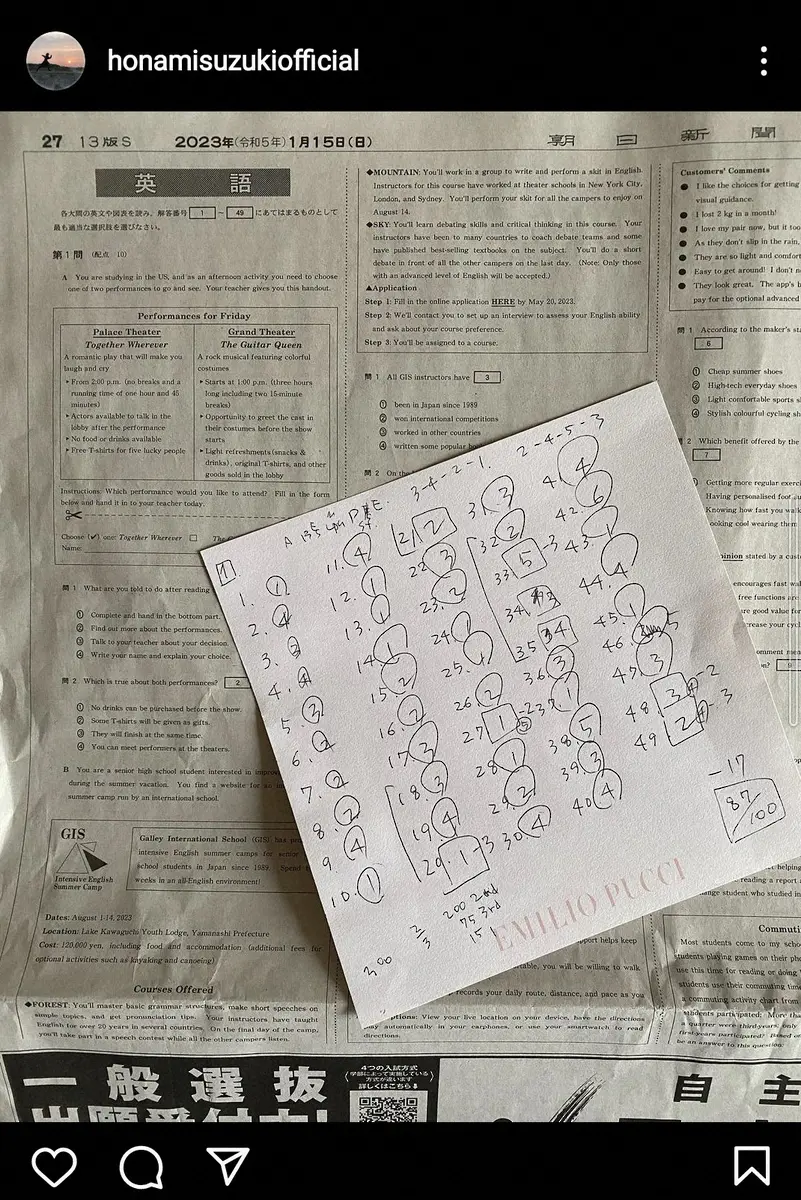 honamisuzukiofficial
27 13版S 2023年(令和5年)1月15日(日) 朝日新聞
英語
各大問の英文や図表を読み、解答番号 1 ~ 49 にあてはまるものとして
最も適当な選択肢を選びなさい。
第1問 (配点 10)
A You are studying in the US, and as an afternoon activity you need to choose
one of two performances to go and see. Your teacher gives you this handout.
Performances for Friday
Palace Theater
Together Wherever
A romantic play that will make you
laugh and cry
▸From 2:00 p.m. (no breaks and a
running time of one hour and 45
minutes)
▸Actors available to talk in the
lobby after the performance
▸No food or drinks available
▸Free T-shirts for five lucky people
Grand Theater
The Guitar Queen
A rock musical featuring colorful
costumes
▸Starts at 1:00 p.m. (three hours
long including two 15-minute
breaks)
▸Opportunity to greet the cast in
their costumes before the show
starts
▸Light refreshments (snacks &
drinks), original T-shirts, and other
goods sold in the lobby
Instructions: Which performance would you like to attend? Fill in the form
below and hand it in to your teacher today.
Choose (✓) one: Together Wherever □
Name:
問1 What are you told to do after reading
① Complete and hand in the bottom part.
② Find out more about the performances.
③ Talk to your teacher about your decision.
④ Write your name and explain your choice.
問2 Which is true about both performances? 2
① No drinks can be purchased before the show.
② Some T-shirts will be given as gifts.
③ They will finish at the same time.
④ You can meet performers at the theaters.
B You are a senior high school student interested in
during the summer vacation. You find a website for an
summer camp run by an international school.
GIS
Intensive English
Summer Camp
Galley International School (GIS) has
intensive English summer camps for senior
school students in Japan since 1989. Spend
weeks in an all-English environment!
Dates: August 1-14, 2023
Location: Lake Kawaguchi Youth Lodge, Yamanashi Prefecture
Cost: 120,000 yen, including food and accommodation (additional fees for
optional activities such as kayaking and canoeing)
Courses Offered
◆FOREST: You'll master basic grammar structures, make short speeches on
simple topics, and get pronunciation tips. Your instructors have taught
English for over 20 years in several countries. On the final day of the camp,
you'll take part in a speech contest while all the other campers listen.
◆MOUNTAIN: You'll work in a group to write and perform a skit in English.
Instructors for this course have worked at theater schools in New York City,
London, and Sydney. You'll perform your skit for all the campers to enjoy on
August 14.
◆SKY: You'll learn debating skills and critical thinking in this course. Your
instructors have been to many countries to coach debate teams and some
have published best-selling textbooks on the subject. You'll do a short
debate in front of all the other campers on the last day. (Note: Only those
with an advanced level of English will be accepted.)
▲Application
Step 1: Fill in the online application HERE by May 20, 2023.
Step 2: We'll contact you to set up an interview to assess your English ability
and ask about your course preference.
Step 3: You'll be assigned to a course.
問1 All GIS instructors have 3
① been in Japan since 1989
② won international competitions
③ worked in other countries
④ written some popular
問2 On the
Customers' Comments
● I like the choices for getting
visual guidance.
● I lost 2 kg in a month!
● I love my pair now, but it too
● As they don't slip in the rain,
● They are so light and comfort
● Easy to get around! I don't n
● They look great. The app's b
pay for the optional advanced
問1 According to the maker's sta
6
① Cheap summer shoes
② High-tech everyday shoes
③ Light comfortable sports s
④ Stylish colourful cycling sh
2 Which benefit offered by the
7
Getting more regular exerci
Having personalised foot
Knowing how fast you walk
ooking cool wearing them
pinion stated by a custo
encourages fast wa
free functions are
are good value for
crease your cycl
3-4-2-1, 2-4-5-3
1. ①
2. ④
3. ③
4. ④
5. ③
6. ②
7. ②
8. ②
9. ④
10. ①
11. ④
12. ①
13. ①
14. ①
15. ②
16. ②
17. ③
18. ③
19. ④
20. 1-3
21. 2
22. ③
23. ②
24. ①
25. ①
26. ②
27. 1-2 ⑤
28. ①
29. ②
30. ④
31. ③
32. ②
33. 5-3
36. ③
37. ①
38. ⑤
39. ③
40. ④
41. ④
42. ⑥
43. ①
44. ④
45. ①
46. 5
47. ③
48 3-2
49 2-3
-17
87/100
200 2nd
75 3rd
15 1
2/3
200
EMILIO PUCCI
pport helps keep
table, you will be willing to walk
records your daily route, distance, and pace as you
ptions: View your live location on your device, have the directions
play automatically in your earphones, or use your smartwatch to read
directions.
helping
reading a report
nge student who studied in
Communti
Most students come to my scho
students playing games on their pho
use this time for reading or doing
students use their commuting time
a commuting activity chart from
students participated; More tha
a quarter were third-years, only
first-years participated? Based o
be an answer to this question:
一般選抜
出願受付中!
4つの入試方式
学部によって実施している
方式が違います
詳しくはこちら⬇
自主